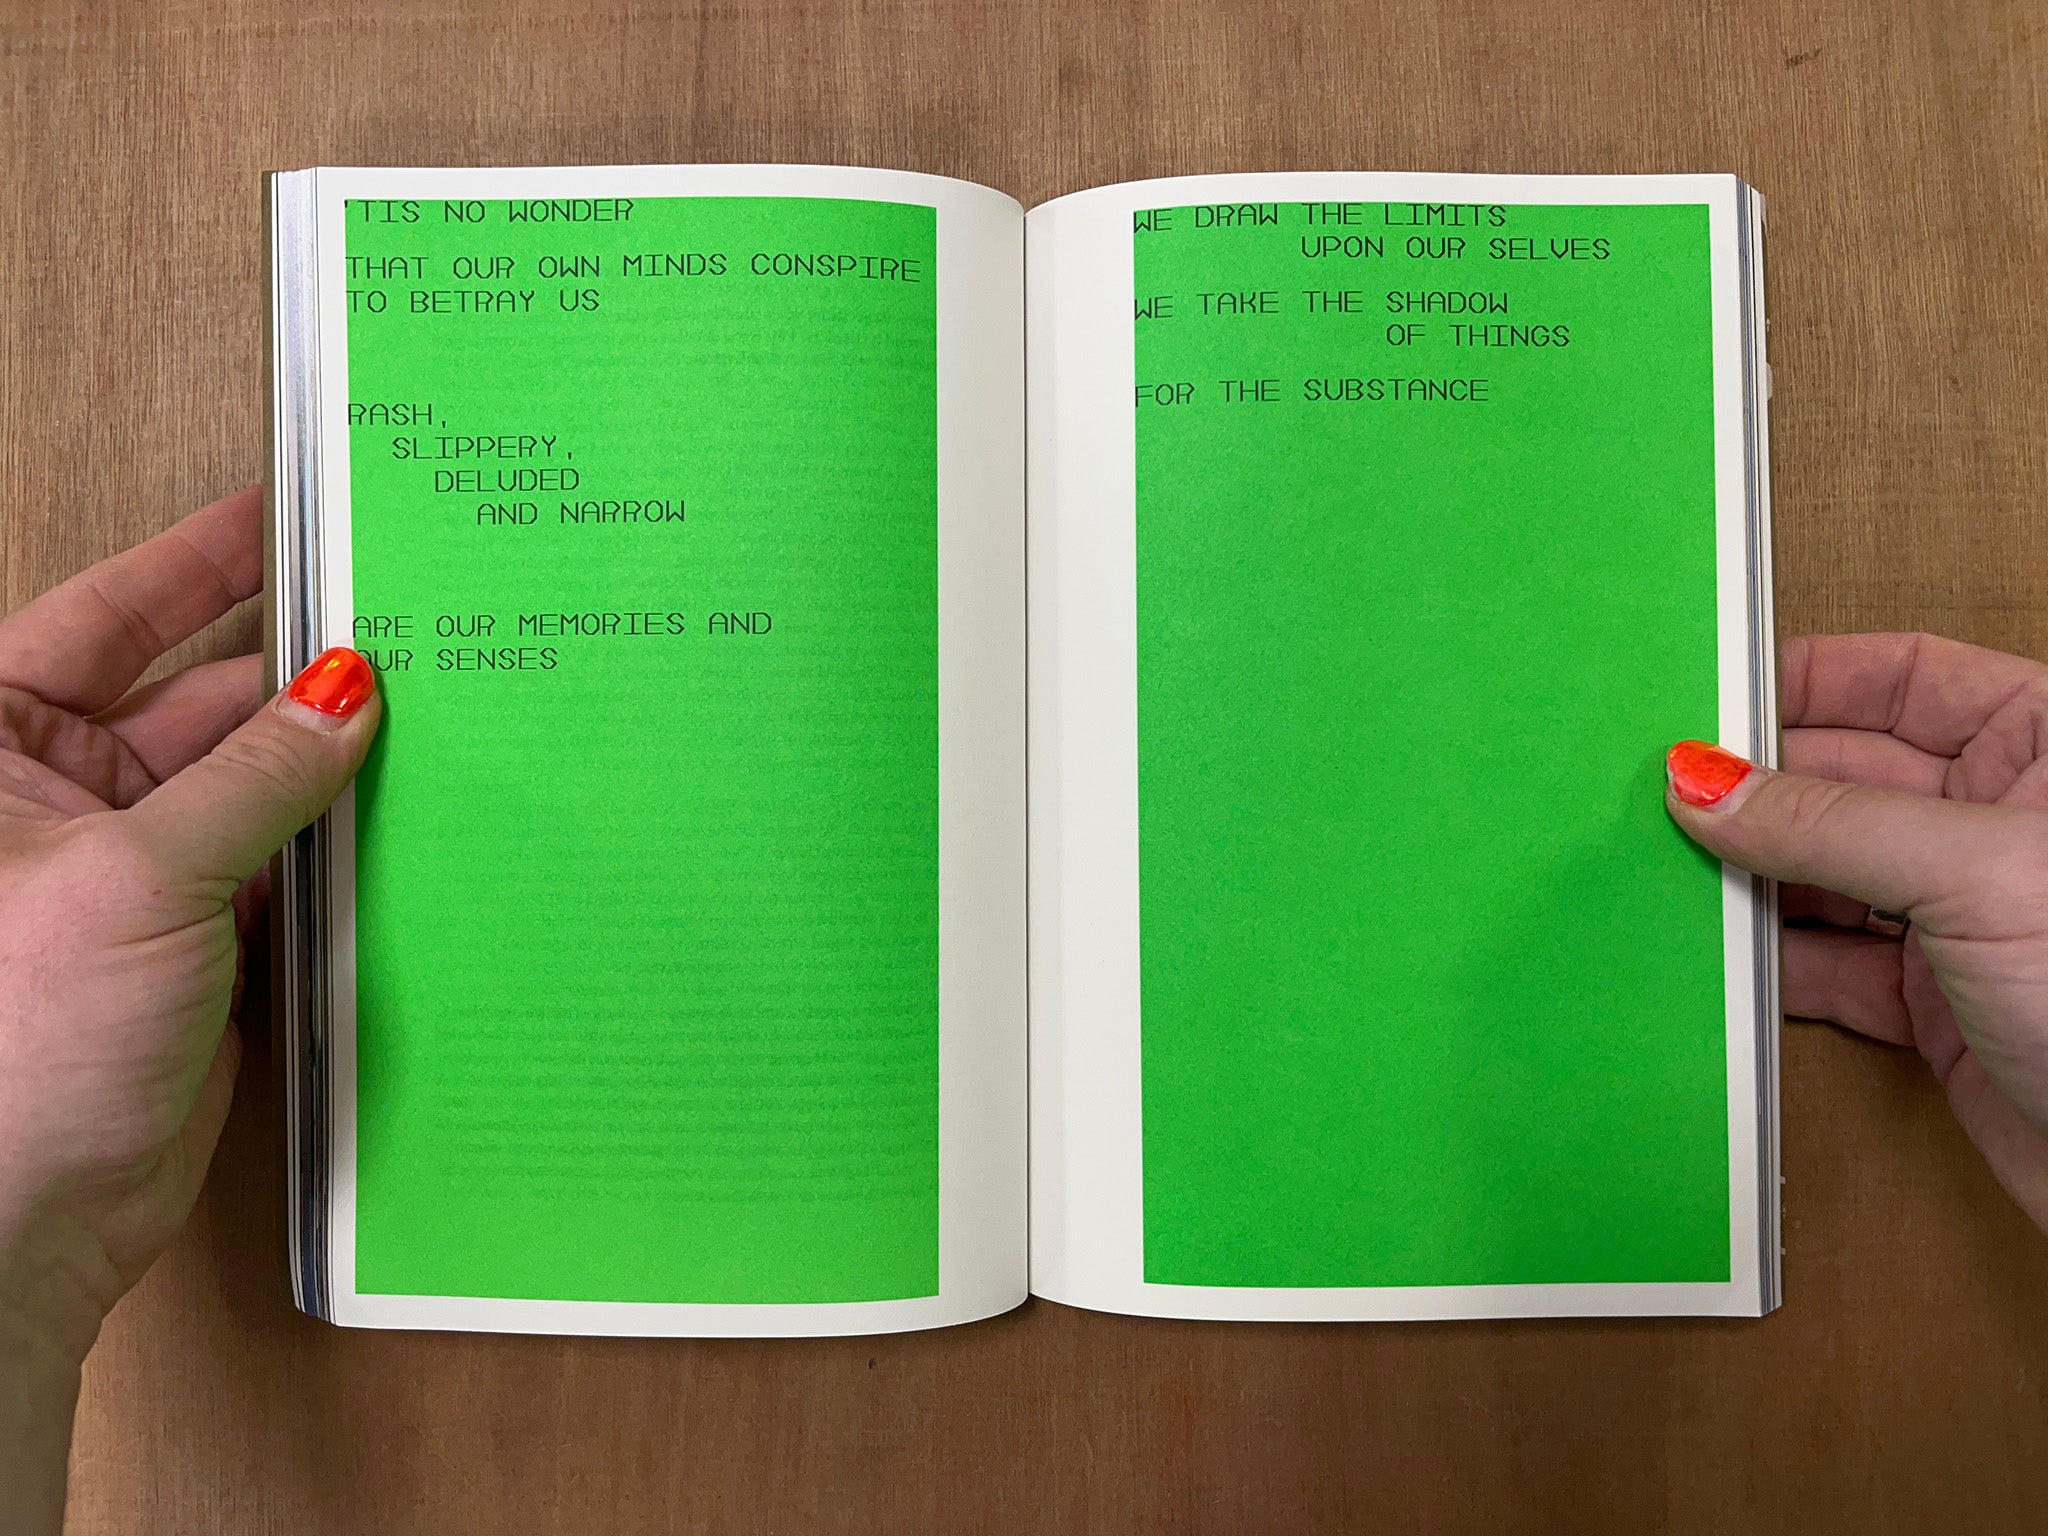 'TIS NO WONDER
THAT OUR OWN MINDS CONSPIRE
TO BETRAY US
RASH,
SLIPPERY,
DELUDED
AND NARROW
ARE OUR MEMORIES AND
OUR SENSES
WE DRAW THE LIMITS
UPON OUR SELVES
WE TAKE THE SHADOW
OF THINGS
FOR THE SUBSTANCE